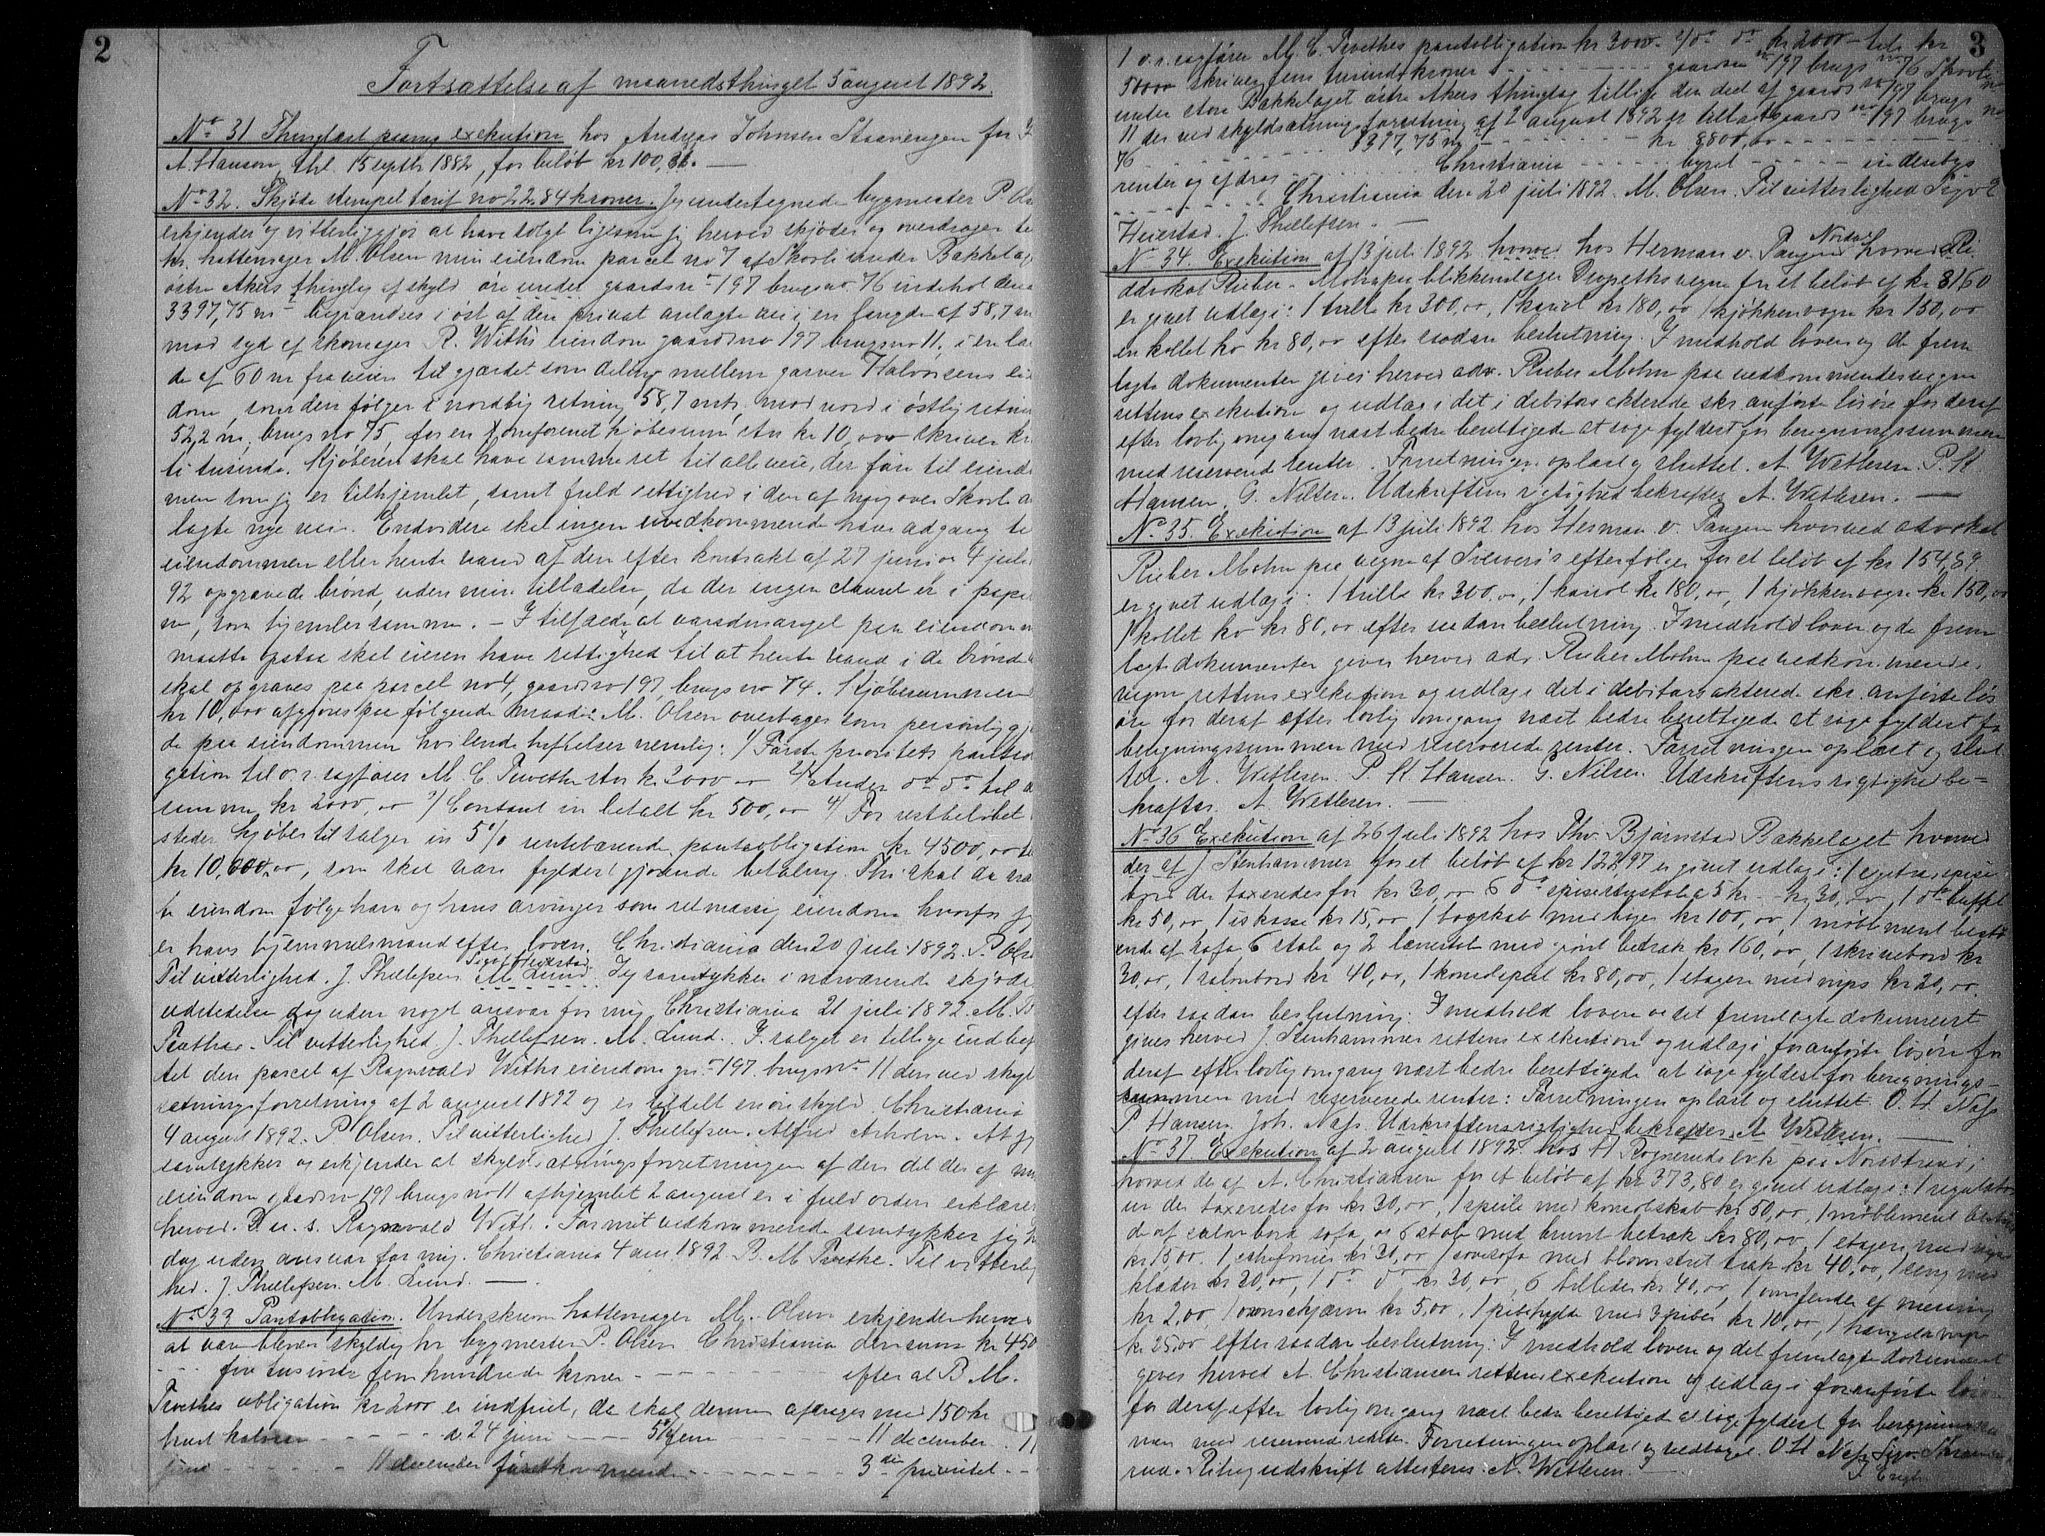 2
Fortsættelse af maanedsthinget 5 august 1892.
No 31 Thinglæst exekution hos Andreas Johnsen Staavengen for
A. Hansen, thl. 15 septb 1882, for beløb kr 100,86. —
No 32. Skjøde stempel tarif no 22. 84 kroner. Jeg undertegnede bygmester P. Ols
erkjender og vitterliggjør at have solgt ligesom jeg herved skjøder og overdrager te
hr. hattemager M. Olsen min eiendom parcel no 7 af Skovli under Bækkelag
østre Akers thinglag af skyld øre under gaardsno 197 brugsno 76 indehol dena
3397,75 m begrændses i øst af den privat anlagte vei i en længde af 58,7 m
mod syd af skomager R. Withs eiendom gaardsno 197 brugsno 11, i en læ
de af 60 m fra veien til gjærdet som deler mellem garver Halvorsens ei
dom, som den følger i nordlig retning 58,7 mtr. mod nord i østlig retnin
52,2 m, brugs no 75, for en omforenet kjøbesum stor kr 10,000 skriver kr
ti tusinde. Kjøberen skal have samme ret til alle veie, der føre til eiend
men som jeg er tilhjemlet, samt fuld rettighed i den af mig over Skovli an
lagte nye vei. Endvidere skal ingen uvedkommende have adgang te
eiendommen eller hente vand af den efter kontrakt af 27 juni og 4 juli
92 opgravede brønd, uden min tilladelse, da der ingen claused er i pape
ne, som hjemler samme. – I tilfælde at vandmangel paa eiendomm
maatte opstaa skal eieren have rettighed til at hente vand i de brønde
skal opgraves paa parcel no 4, gaardsno 197 brugs no 74. Kjøbesummen
kr 10,000 afgjøres paa følgende maade: M. Olsen overtager som personlig gj
de paa eiendommen heftelser nemlig: 1/ Første prioritets pantso
gation til o.r. sagfører M. C. Tvethe stor kr 2000 oo 2/ Anden do do til a
summa kr 2000, oo 3/ Contant in betalt kr 500, oo 4/ For restbeløbet
steder kjøber til sælger in 5% rentebærende pantsobligation kr 4500, oo t
kr 10,000,oo, som skal være fyldestgjørende betaling. Thi skal da næ
te eiendom følge ham og hans arvinger som retmæssig eiendom hvorfor j
er hans hjemmelsmand efter loven. Christiania den 20 juli 1892. P. Ols
Til vitterlighed. J. Thellefsen M. Lund. Jeg samtykker i nærværende skjøde
udstedelse dog uden noget ansvar for mig. Christiania 21 juli 1892. M. B
Til vitterlighed. J. Thellefsen. M. Lund. I salget er tillige indbef
tet den parcel af Ragnvald Withs eiendom gno 197 brugsno 11 den ved skyld
sætningsforretning af 2 august 1892 og er tildelt en øre skyld. Christiania
4 august 1892. P Olsen. Til vitterlighed J. Thellefsen. Alfred Arholm. At jeg
samtykker og erkjender at skyldsætningsforretningen af den del der af min
eiendom gaardsno 197 brugsno 11 afhjemlet 2 august er i fuld orden erklærer
herved. D. u. s. Ragnvald With. For mit vedkommende samtykker jeg
dog uden ansvar for mig. Christiania 4 aug 1892. B. M. Tvethe. Til vitterlig
hed. J. Thellefsen M. Lund. —
No 33 Pantobligation. Underskrevne hattemager M. Olsen erkjender herve
at være bleven skyldig hr bygmester P. Olsen Christiania den sum kr 450
- - - fire tusinde fem hundrede kroner - - - efter at B. M.
Tvethes obligation kr 2000 er indfriet, da skal denne afdrages med 150 kr
hvert halvaar - - - d. 24 juni - - - 5% fem - - - 11 december . 11
juni - - - 11 december førstkommende - - - 3die prioritet - -
3
1 o. r. sagfører M. C. Tvethes pantobligation kr 3000 2/ do do kr 2000 – tils. kr
5000 skriver fem tusinde kroner - - - gaardsno 197 brugsno 76 Skovli
under store Bækkelaget østre Akers thinglag tillige den deel af gaardsno 197 brugs no
11 der ved skyldsætningsforretning af 2 august 1892 er tillagt gaardsno 197 brugsno
76 - - - 3397,75 m - - - kr 8800,00 - - -
renter og afdrag - - - Christiania - - - byret - - - indenbys
- - - Christiania den 20 juli 1892. M. Olsen. Til vitterlighed Sigv.
Heierstad. J. Thellefsen. —
No 34. Exekution af 13 juli 1892 hos Herman v. Tangen hvorved
advokat Rieber-Mohn paa blikkenslager vegne for et beløb af kr 3160
er givet udlæg i: 1 trille kr 300,oo, 1 kariol kr 180,oo 1 kjøkkenvogn kr 150,oo
en kollet ko kr 80,oo efter saadan beslutning. I medhold loven og de frem
lagte dokumenter gives herved adv. Rieber Mohn paa vedkommendes vegne
rettens exekution og udlæg i det i debitors akterede skr. anførte løsøre for deraf
efter lovlig omgang næst bedre berettigede at søge fyldest for beregningssummen
med reserverede renter. Forretningen oplæst og sluttet. A. Wetlesen. P. H.
Hansen, G. Nilsen. Udskriftens rigtighed bekræfter A. Wetlesen. —
No 35. Exekution af 13 juli 1892 hos Herman v. Tangen hvorved advokat
Rieber Mohn paa vegne af Sievers's efterfølger for et beløb af kr 154,59
er givet udlæg i: 1 trille kr 300,oo, 1 kariol kr 180,oo, 1 kjøkkenvogn kr 150,oo
1 kollet ko kr 80,oo efter saadan beslutning. I medhold loven og de frem
lagte dokumenter gives herved adv. Rieber Mohn paa vedkommende
vegne rettens exekution og udlæg i det i debitors akterede skr. anførte løs
øre for deraf efter lovlig omgang næst bedre berettigede at søge fyldest fo
beregningssummen med reserverede renter. Forretningen oplæst og slut
tet. A. Wetlesen. P. H. Hansen. G. Nilsen. Udskriftens rigtighed be-
kræftes. A. Wetlesen. —
No 36 Exekution af 26 juli 1892 hos Thv. Bjørnstad Bækkelaget hvorved
der af J. Stenhammer for et beløb af kr 122,97 er givet udlæg i: 1 egetræs spise
bord der taxeredes for kr 30,oo 6 do spisestuestole a 5 kr - kr 30,oo, 1 do buffet
kr 50,oo, 1 iskasse kr 15,oo, 1 bogskab med bøger kr 100,oo, 1 møblement bestaa
ende af sofa 6 stole og 2 lænestole med grønt betræk kr 160,oo, 1 skrivebord kr
30,oo, 1 salonbord kr 40,oo, 1 konsolspeil kr 80,oo, 1 etagere med nips kr 20,oo.
efter saadan beslutning. I medhold loven og det fremlagte dokument
gives herved J. Stenhammer rettens exekution og udlæg i foranførte løsøre for
deraf efter lovlig omgang næst bedre berettigede at søge fyldest for beregnings-
summen med reserverede renter: Forretningen oplæst og sluttet. O. H. Næss
P Hansen. Joh. Næss. Udskriftens rigtighed bekræftes A. Wetlesen. —
No 37. Exekution af 2 august 1892 hos H Rognerud paa Nordstrand,
hvorved der af A. Christiansen for et beløb af kr 373,80 er givet udlæg i: 1 regulator
ur der taxeredes for kr 30,oo, 1 speile med konsolskab kr 50,oo, 1 møblement bestaaen
de af salonbord, sofa, og 6 stole med brunt betræk kr 80,oo, 1 etagere med nips
kr 15,oo. 1 chefonier kr 30,oo 1 sovesofa med blomstret træk kr 40,oo, 1 seng med
klæder kr 20,oo, 1 do do kr 30,oo, 6 billeder kr 40,oo, 1 ovnsfender af messing
kr 2,oo, 1 ovnsskjærm kr 5,oo, 1 pibehylde med 3 piber kr 10,oo, 1 hængelampe
kr 25,oo efter saadan beslutning: I medhold loven og det fremlagte dokument
gives herved A. Christiansen rettens exekution og udlæg i foranførte løsøre
for deraf efter lovlig omgang næst bedre berettigede at søge fyldest for beregningssu
men med reserverede renter. Forretningen oplæst og vedtaget. O. H. Næss Sigv.
rud. Ritig udskrift attesteres. A. Wetlesen. —